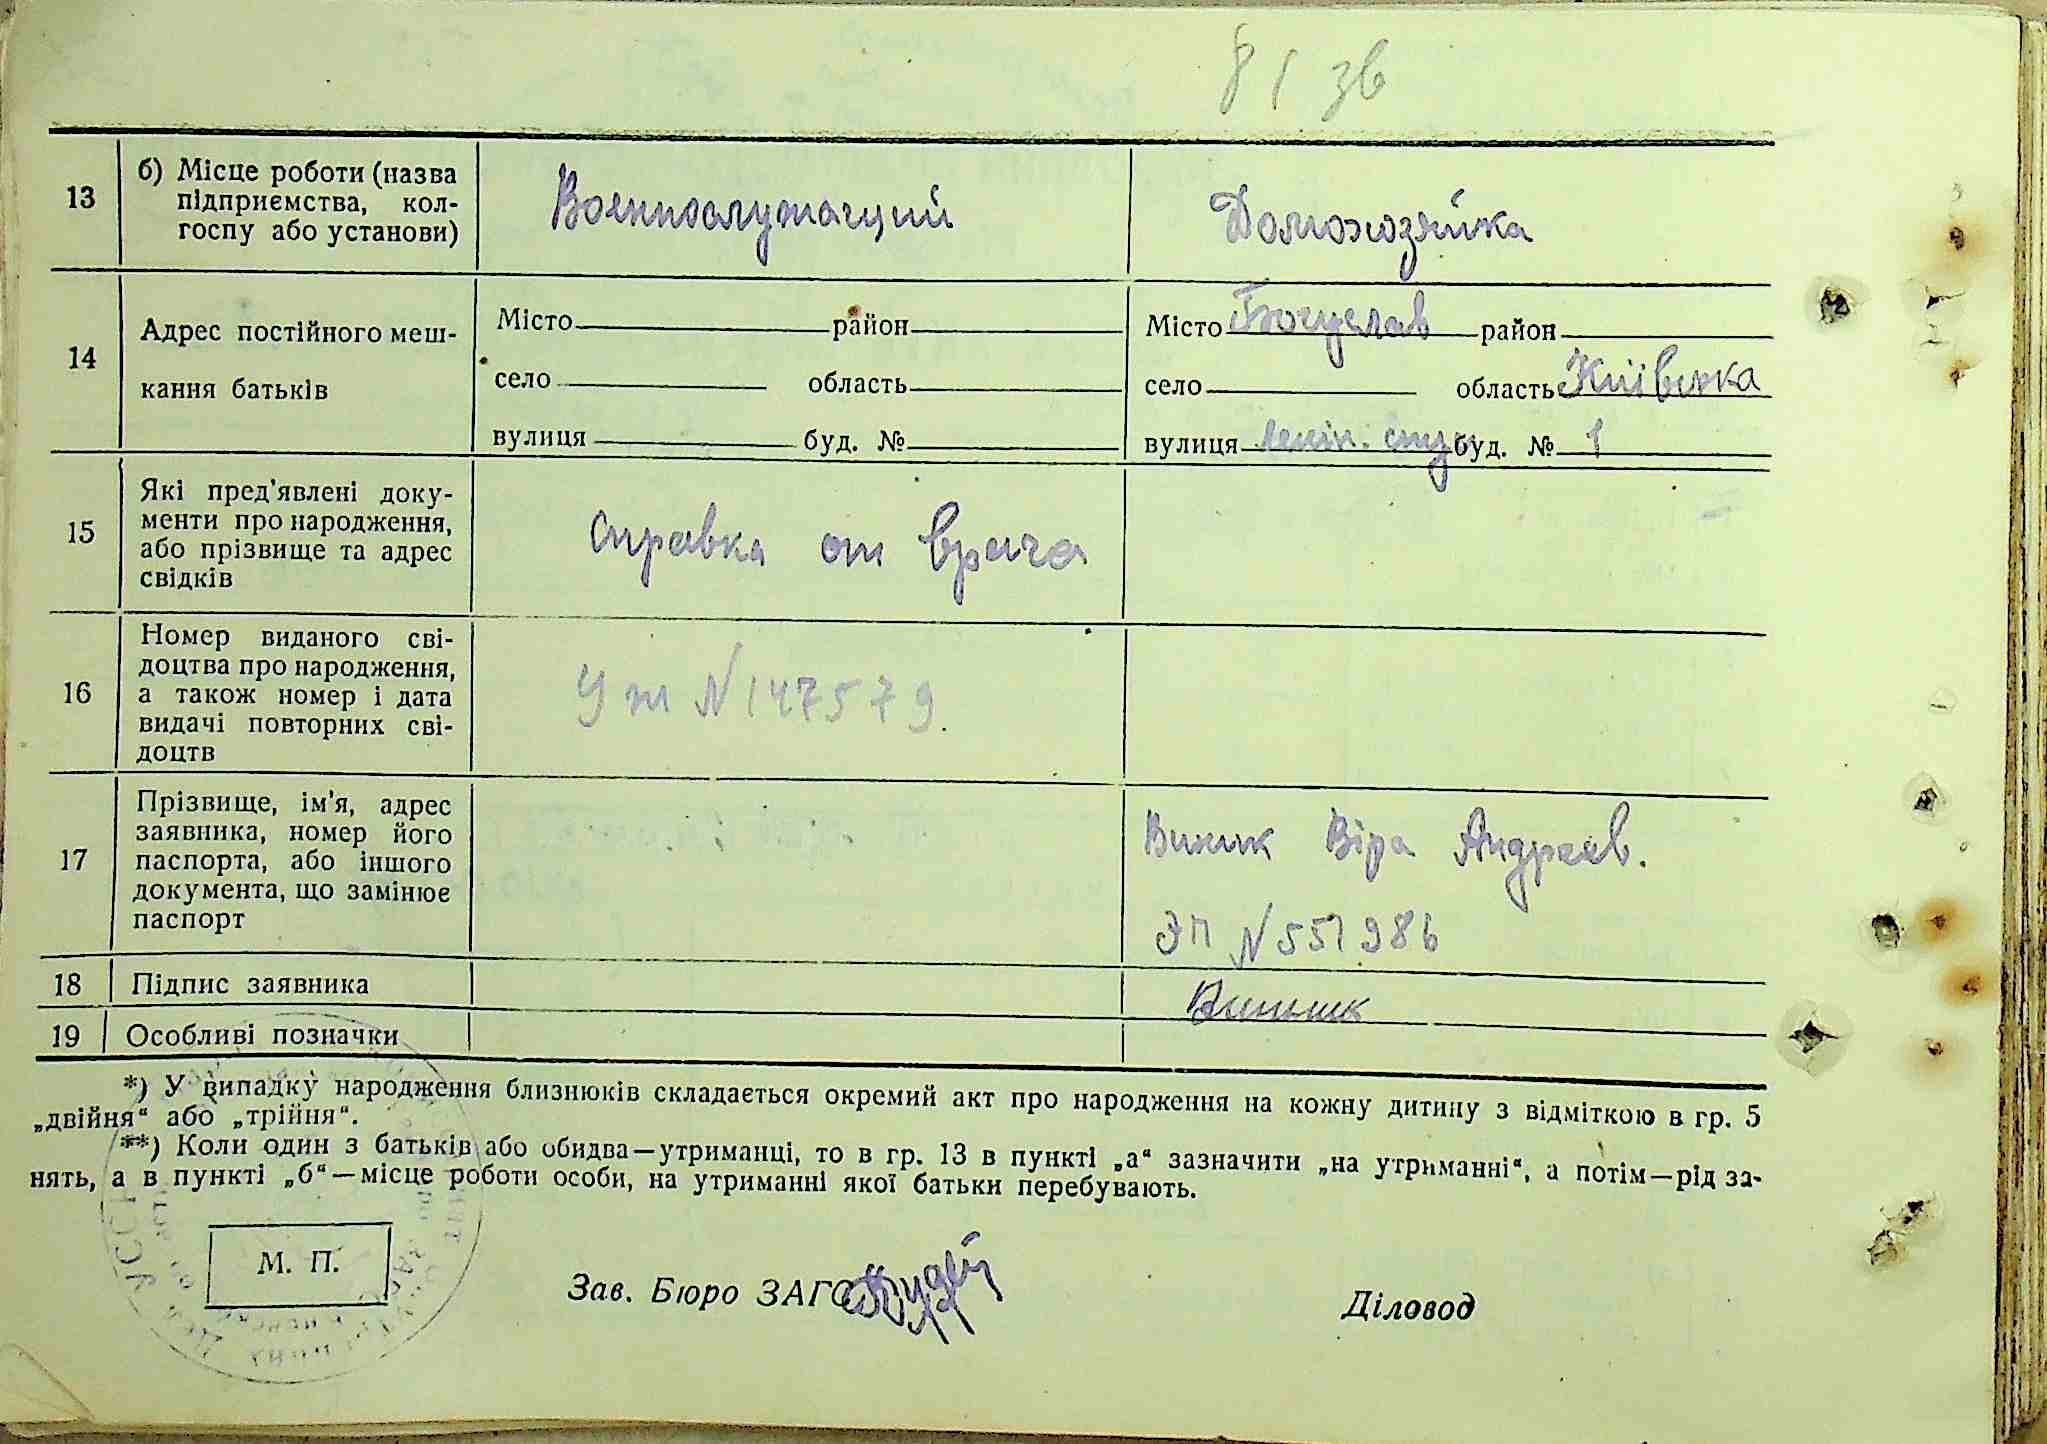 81 зв
13 б) Місце роботи (назва підприємства, кол-госпу або установи) Военнослужащий Домохозяйка
14 Адрес постійного меш-кання батьків
Місто район Місто Богуслав район
село область село область Київська
вулиця буд. № вулиця Ленін. буд. № 1
15 Які пред'явлені доку-
менти про народження,
або прізвище та адрес
свідків
Справка от врача
16 Номер виданого сві-
доцтва про народження,
а також номер і дата
видачі повторних сві-
доцтв
N 147579.
17 Прізвище, ім'я, адрес
заявника, номер його
паспорта, або іншого
документа, що замінює
паспорт
Виник Віра Андреев.
ЭП N 551986
18 Підпис заявника
19 Особливі позначки
*) У випадку народження близнюків складається окремий акт про народження на кожну дитину з відміткою в гр. 5
„двійня“ або „трійня“.
**) Коли один з батьків або обидва—утриманці, то в гр. 13 в пункті „а“ зазначити „на утриманні“, а потім—рід за-
нять, а в пункті „б“—місце роботи особи, на утриманні якої батьки перебувають.
М. П.
Зав. Бюро ЗАГС
Діловод